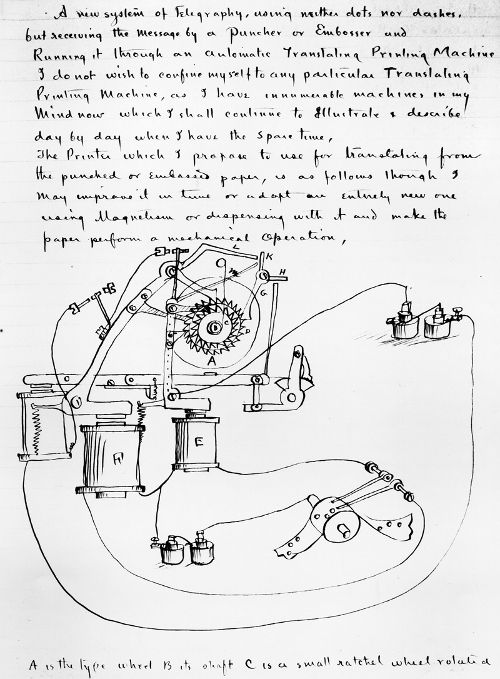 A new system of Telegraphy, using neither dots nor dashes,
but receiving the message by a Puncher or Embosser and
Running it through an automatic Translating Printing Machine
I do not wish to confine myself to any particular Translating
Printing Machine, as I have innumerable machines in my
Mind now which I shall continue to Illustrate & describe
day by day when I have the spare time,
The Printer which I propose to use for translating from
the punched or Embossed paper, is as follows though I
may improve it in time or adapt an Entirely new one
using Magnetism or dispensing with it and make the
paper perform a mechanical Operation,
L
K
H
G
C
B
A
E
A is the type wheel B its shaft C is a small ratchet wheel rotated